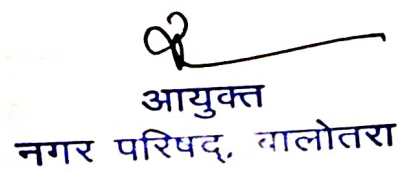 आयुक्त
नगर परिषद्, बालोतरा